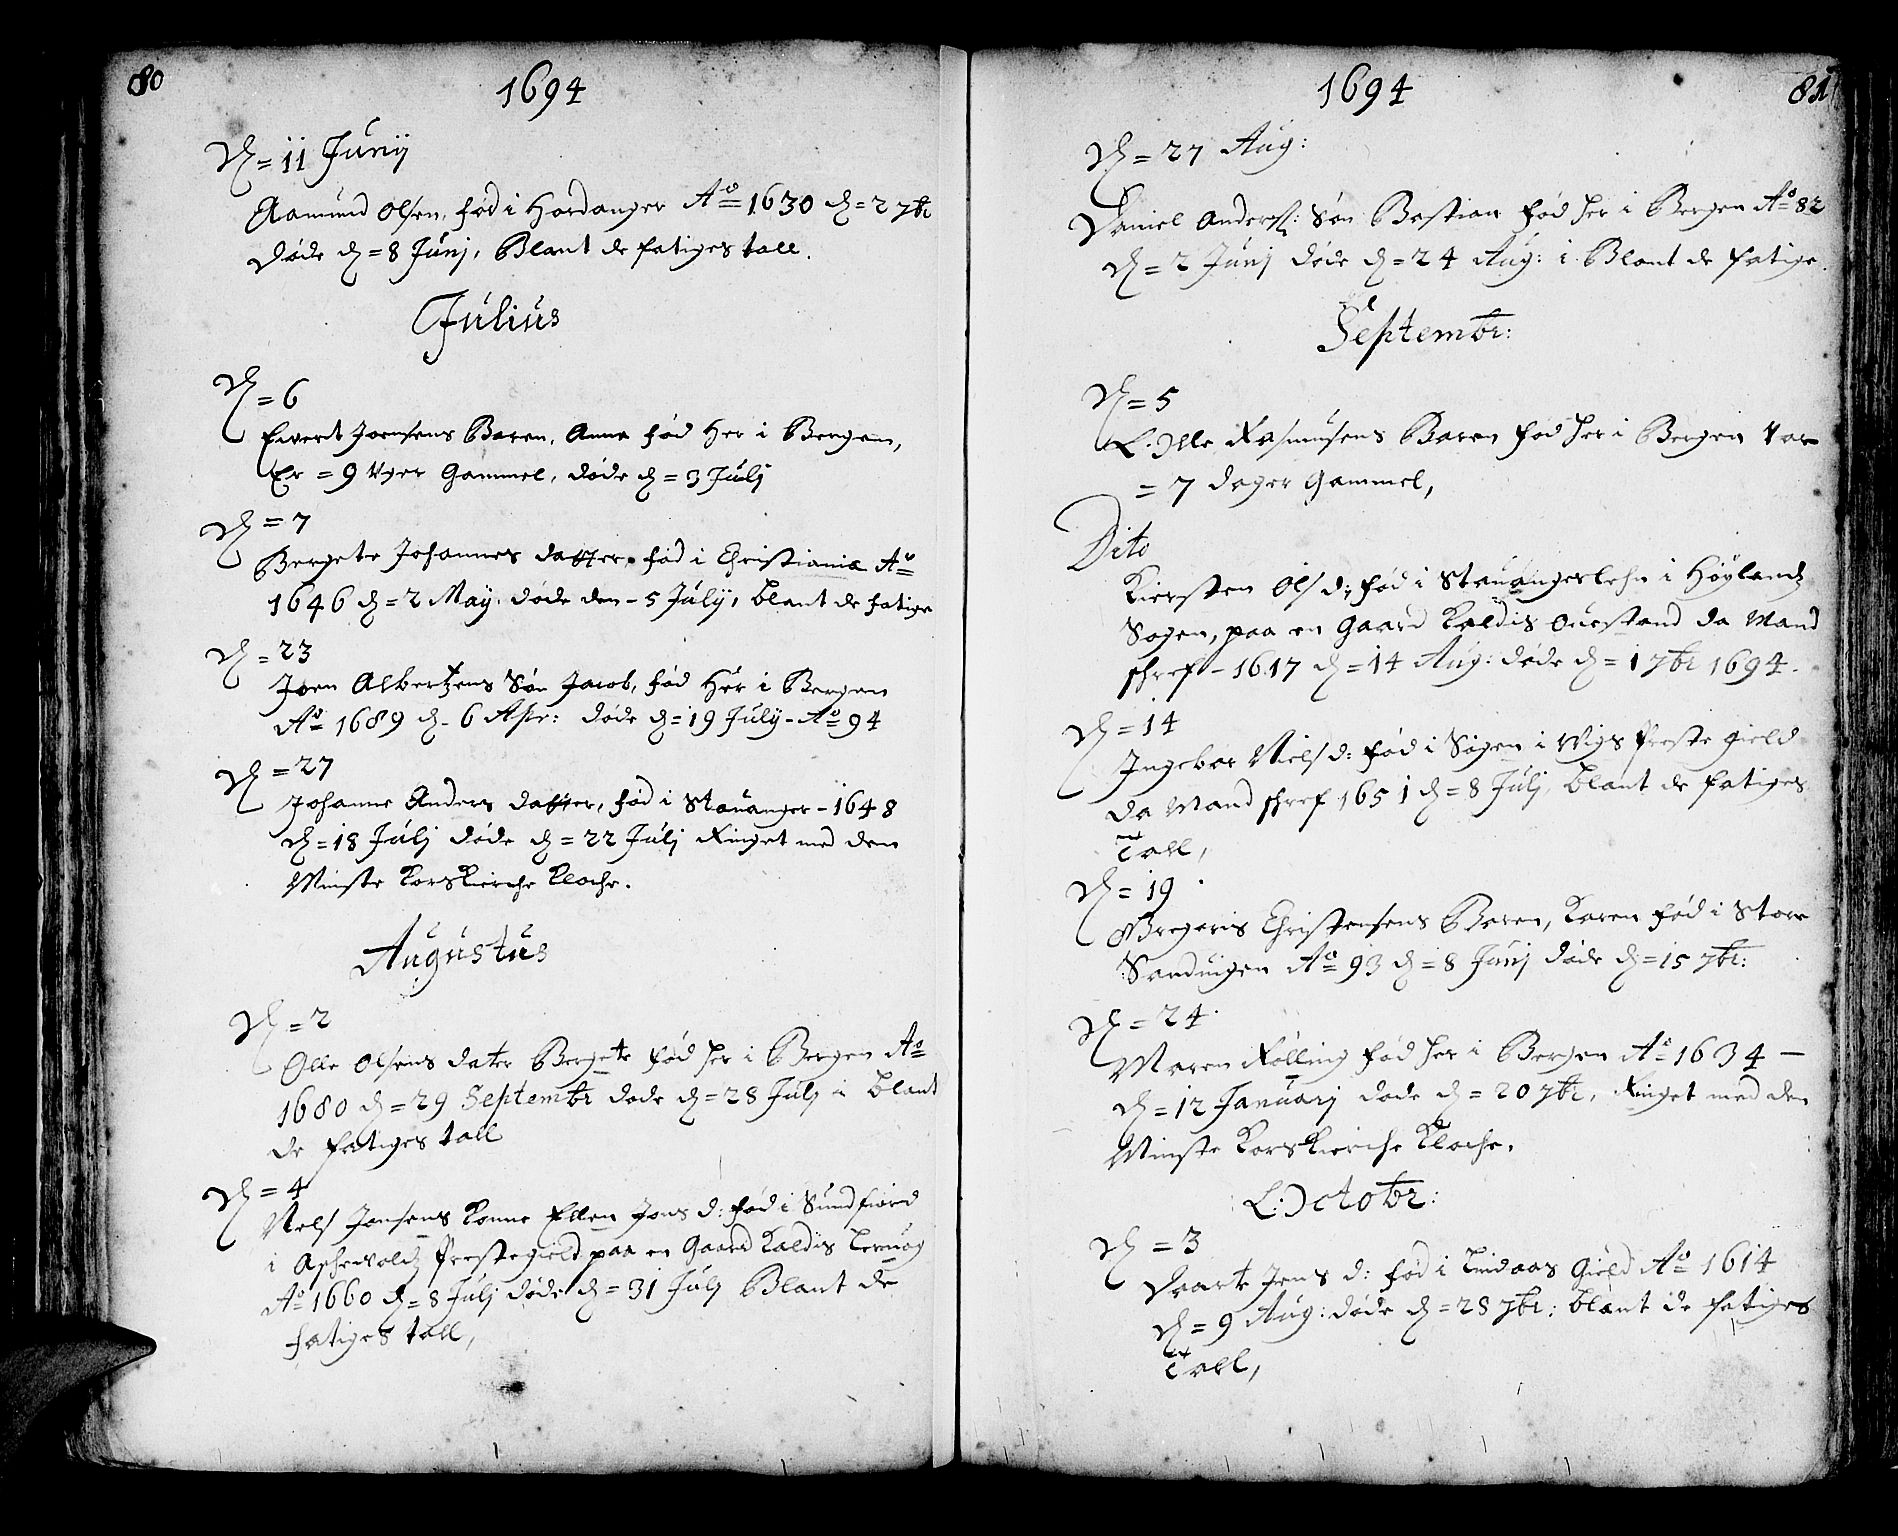 80
1694
D = 11 Junij
Aamund Olsen, fød i Hardanger Ao 1630 d = 2 7br
Døde d = 8 Junj, Blant de fatiges tall.
Julius
D = 6
Ewert Joensens Baren, Anne fød Her i Bergen,
Er = 9 Uger Gammel, døde d = 3 Julj
D = 7
Bergete Johannes datter, fød i Christiania Ao
1646 d = 2 May. døde den - 5 Julij, blant de fatige
D = 23
Joen Albertzens Søn Jacob, fød Her i Bergen
Ao 1689 d - 6 Apr: døde d = 19 Julij - Ao 94
D = 27
Johanne Anders datter, fød i Stauanger - 1648
d = 18 Julj døde d = 22 Julj Ringet med den
Minste Korskierche Kloche.
Augustus
D = 2
Olle Olsens dater Bergete fød her i Bergen Ao
1680 d = 29 Septembr døde d = 28 Julj i blant
de fatiges tall
D = 4
Nels Jonsens Konne Ellen Jons d: fød i Sundfiord
i Aschewoldz Prestegield paa en Gaard Kaldis
Ao 1660 d = 8 Julj døde d = 31 Julj Blant de
fatiges tall,
1694
81
D = 27 Aug:
Daniel Anderss: Søn Bastian fød her i Bergen Ao 82
d = 2 Junj døde d = 24 Aug: i Blant de fatige.
Septembr:
D = 5
Olle Rasmusens Baren fød her i Bergen var
= 7 dager Gammel,
Dito
Kiersten Ols d: fød i Stauangerlehn i Høylandz
Sogen, paa en Gaard Kaldis Ouestand da Mand
schref - 1617 d = 14 Aug: døde d = 1 7br 1694.
D = 14
Ingebor Niels d: fød i Sogen i Wigs Preste gield
da Mand schref 1651 d = 8 Julj, blant de fatiges
Tall,
D = 19
Gregoris Christensens Baren, Karen fød i Store
Sanduigen Ao 93 d = 8 Junj døde d = 15 7br:
D = 24
Maren Rølling fød her i Bergen Ao 1634 —
d = 12 Januarj døde d = 20 7br, Ringet med den
Minste Korskierche Kloche.
Octobr:
D = 3
Daarte Jens d: fød i Lindaas Gield Ao 1614
d = 9 Aug: døde d = 28 7br: blant de fatiges
Tall,